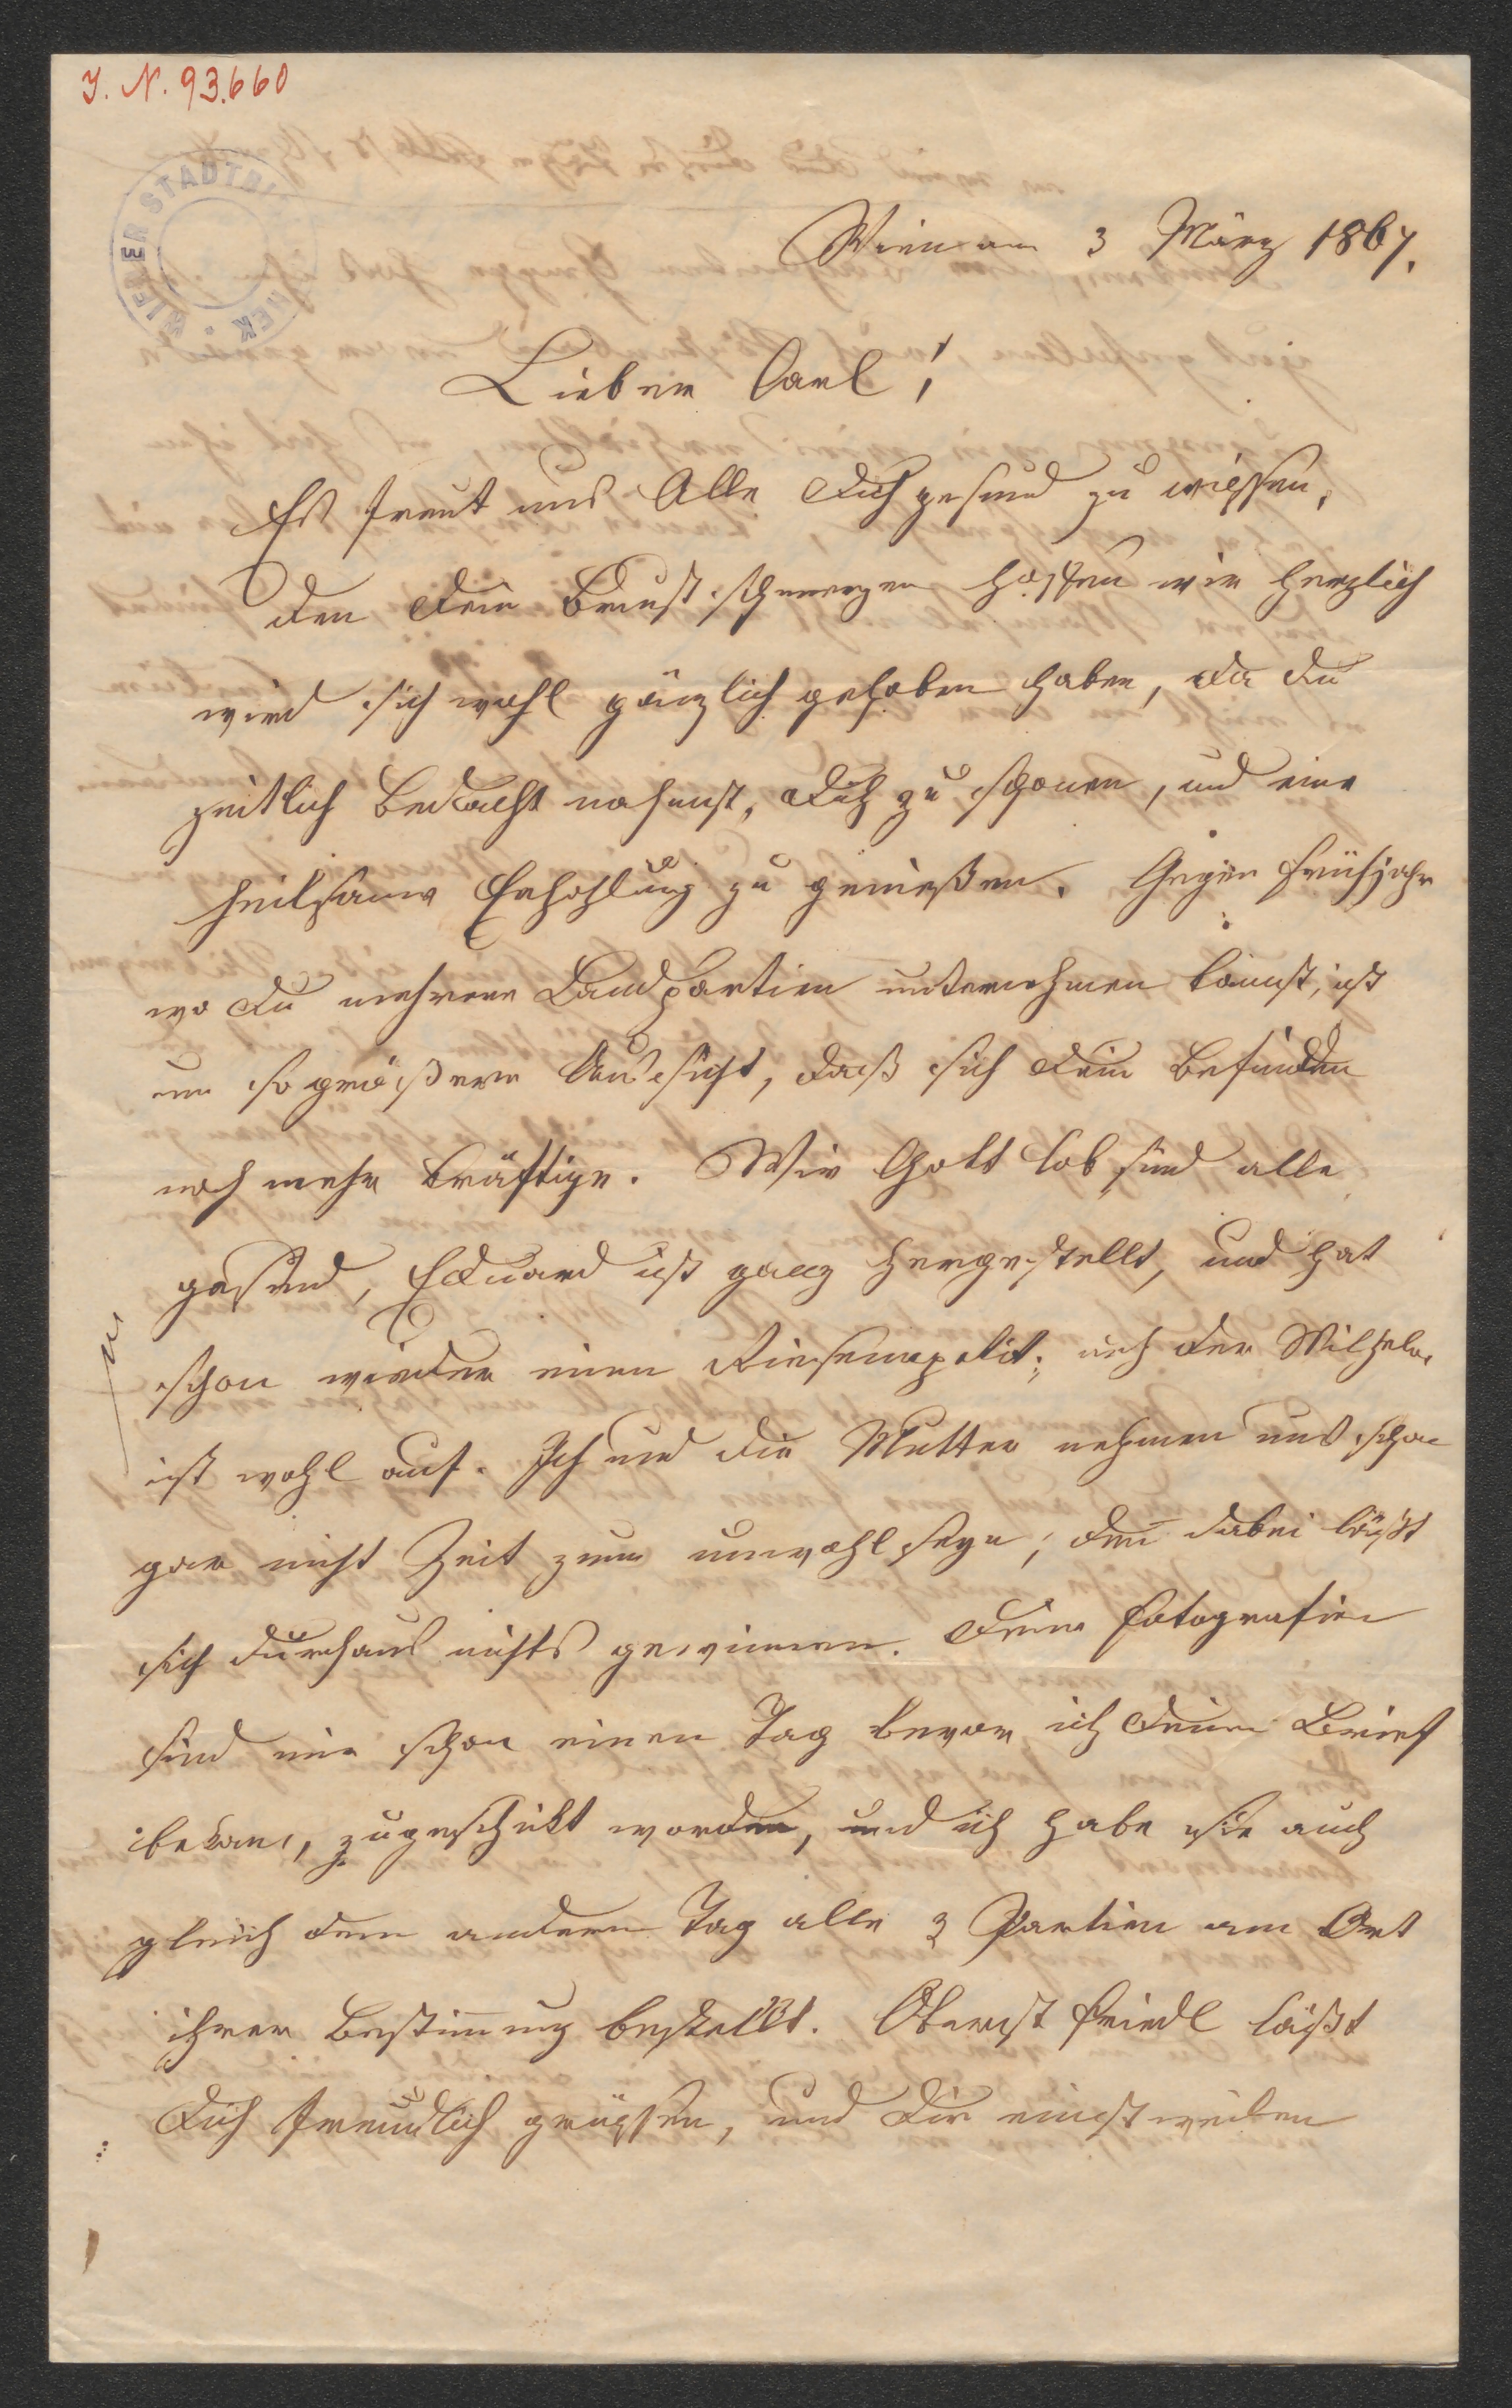 J. N. 93.660
WIENER STADTBI EK
Wien am 3 März 1867.
Lieber Carl!
Es freut uns Alle Dich gesund zu wissen,
den Dein Brustschmerzen hoffen wir herzlich
wird sich wohl gänzlich gehoben haben, da Du
zeitlich Bedacht nahmst, Dich zu schonen, und eine
heilsame Erhohlung zu genießen. Gegen Frühjahr
wo Du mehrere Landpartien unternehmen kannst, ist
um so größere Aussicht, daß sich Dein Befinden
noch mehr kräftige. Wir Gott lob sind alle
gesund, Eduard ist ganz hergestellt, und hat
schon wieder einen Riesenapetit; uch der Wilhelm
ist wohl auf. Ich und die Mutter nehmen uns schon
gar nicht Zeit zum unwohl seyn; den dabei läßt
sich durchaus nichts gewinnen. Deine Fotografien
sind mir schon einen Tag bevor ich Deinen Brief
bekam, zugeschikt worden, und ich habe sie auch
gleich den andern Tag alle 3 Partien am Ort
ihrer Bestim̄ung bestellt. Oberst Friedl läßt
Dich freundlich grüssen, und Dir einstweilen